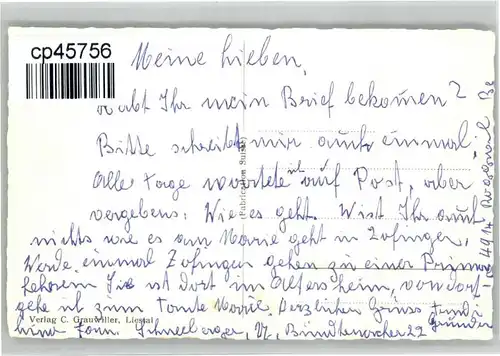 cp45756
Meine Lieben,
Habt Ihr mein Brief bekomen?
Bitte schreibt mir auch einmal,
Alle Tage wartete ich auf Post, aber
vergebens. Wie es geht. Wist Ihr auch
nichts wie es an Marie geht in Zofingen,
Werde einmal Zofingen gehen zu einer
Sie ist dort im Altersheim, von dort
gehe ich zum Tante Marie. Herzlichen Grüss
Schneeberger,
Verlag C. Grauwiller, Liestal
(Fabrication Suisse)